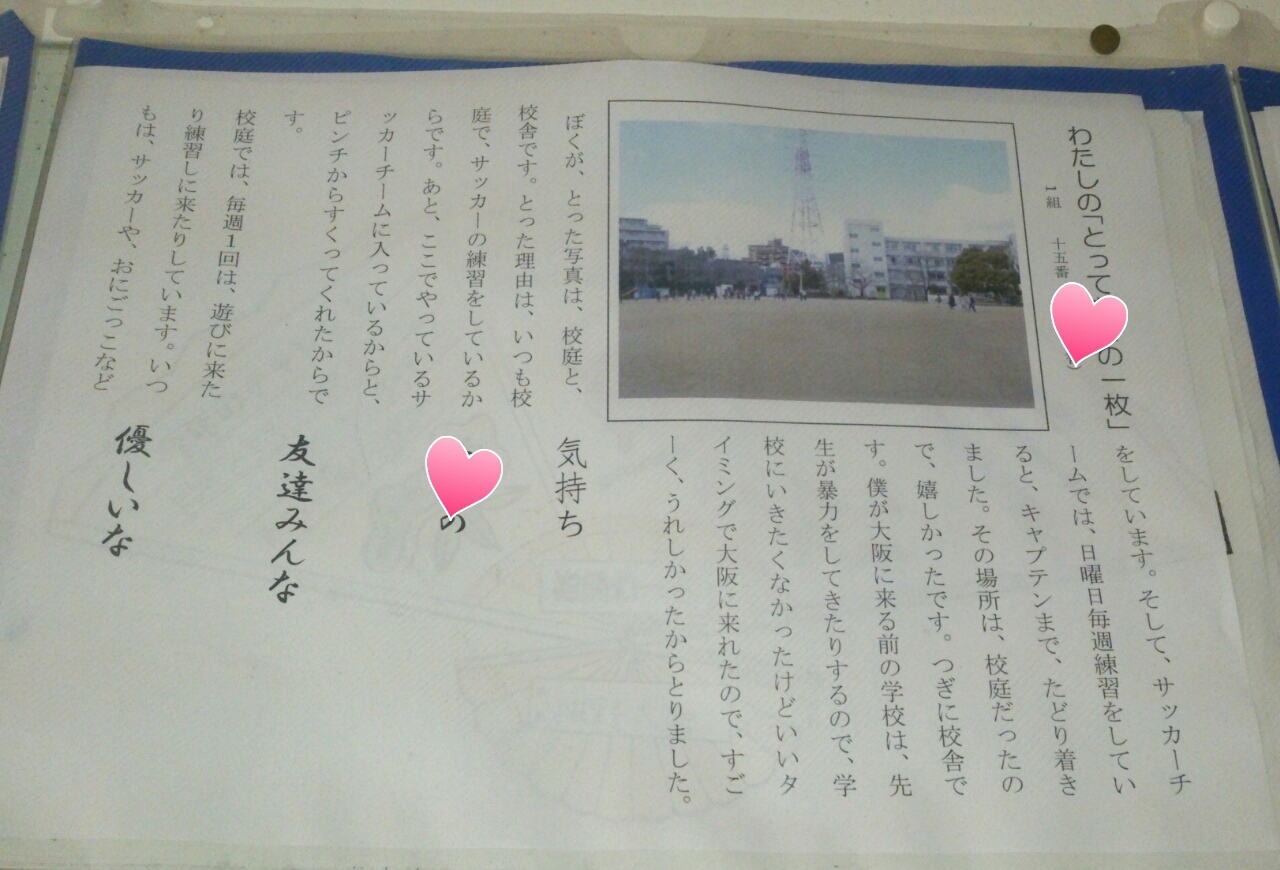 わたしの「とって
の一枚」
1組 十五番
ぼくが、とった写真は、校庭と、
校舎です。とった理由は、いつも校
庭で、サッカーの練習をしているか
らです。あと、ここでやっているサ
ッカーチームに入っているからと、
ピンチからすくってくれたからで
す。
校庭では、毎週1回は、遊びに来た
り練習しに来たりしています。いつ
もは、サッカーや、おにごっこなど
をしています。そして、サッカーチ
ームでは、日曜日毎週練習をしてい
ると、キャプテンまで、たどり着き
ました。その場所は、校庭だったの
で、嬉しかったです。つぎに校舎で
す。僕が大阪に来る前の学校は、先
生が暴力をしてきたりするので、学
校にいきたくなかったけどいいタ
イミングで大阪に来れたので、すご
ーく、うれしかったからとりました。
気持ち
の
友達みんな
優しいな